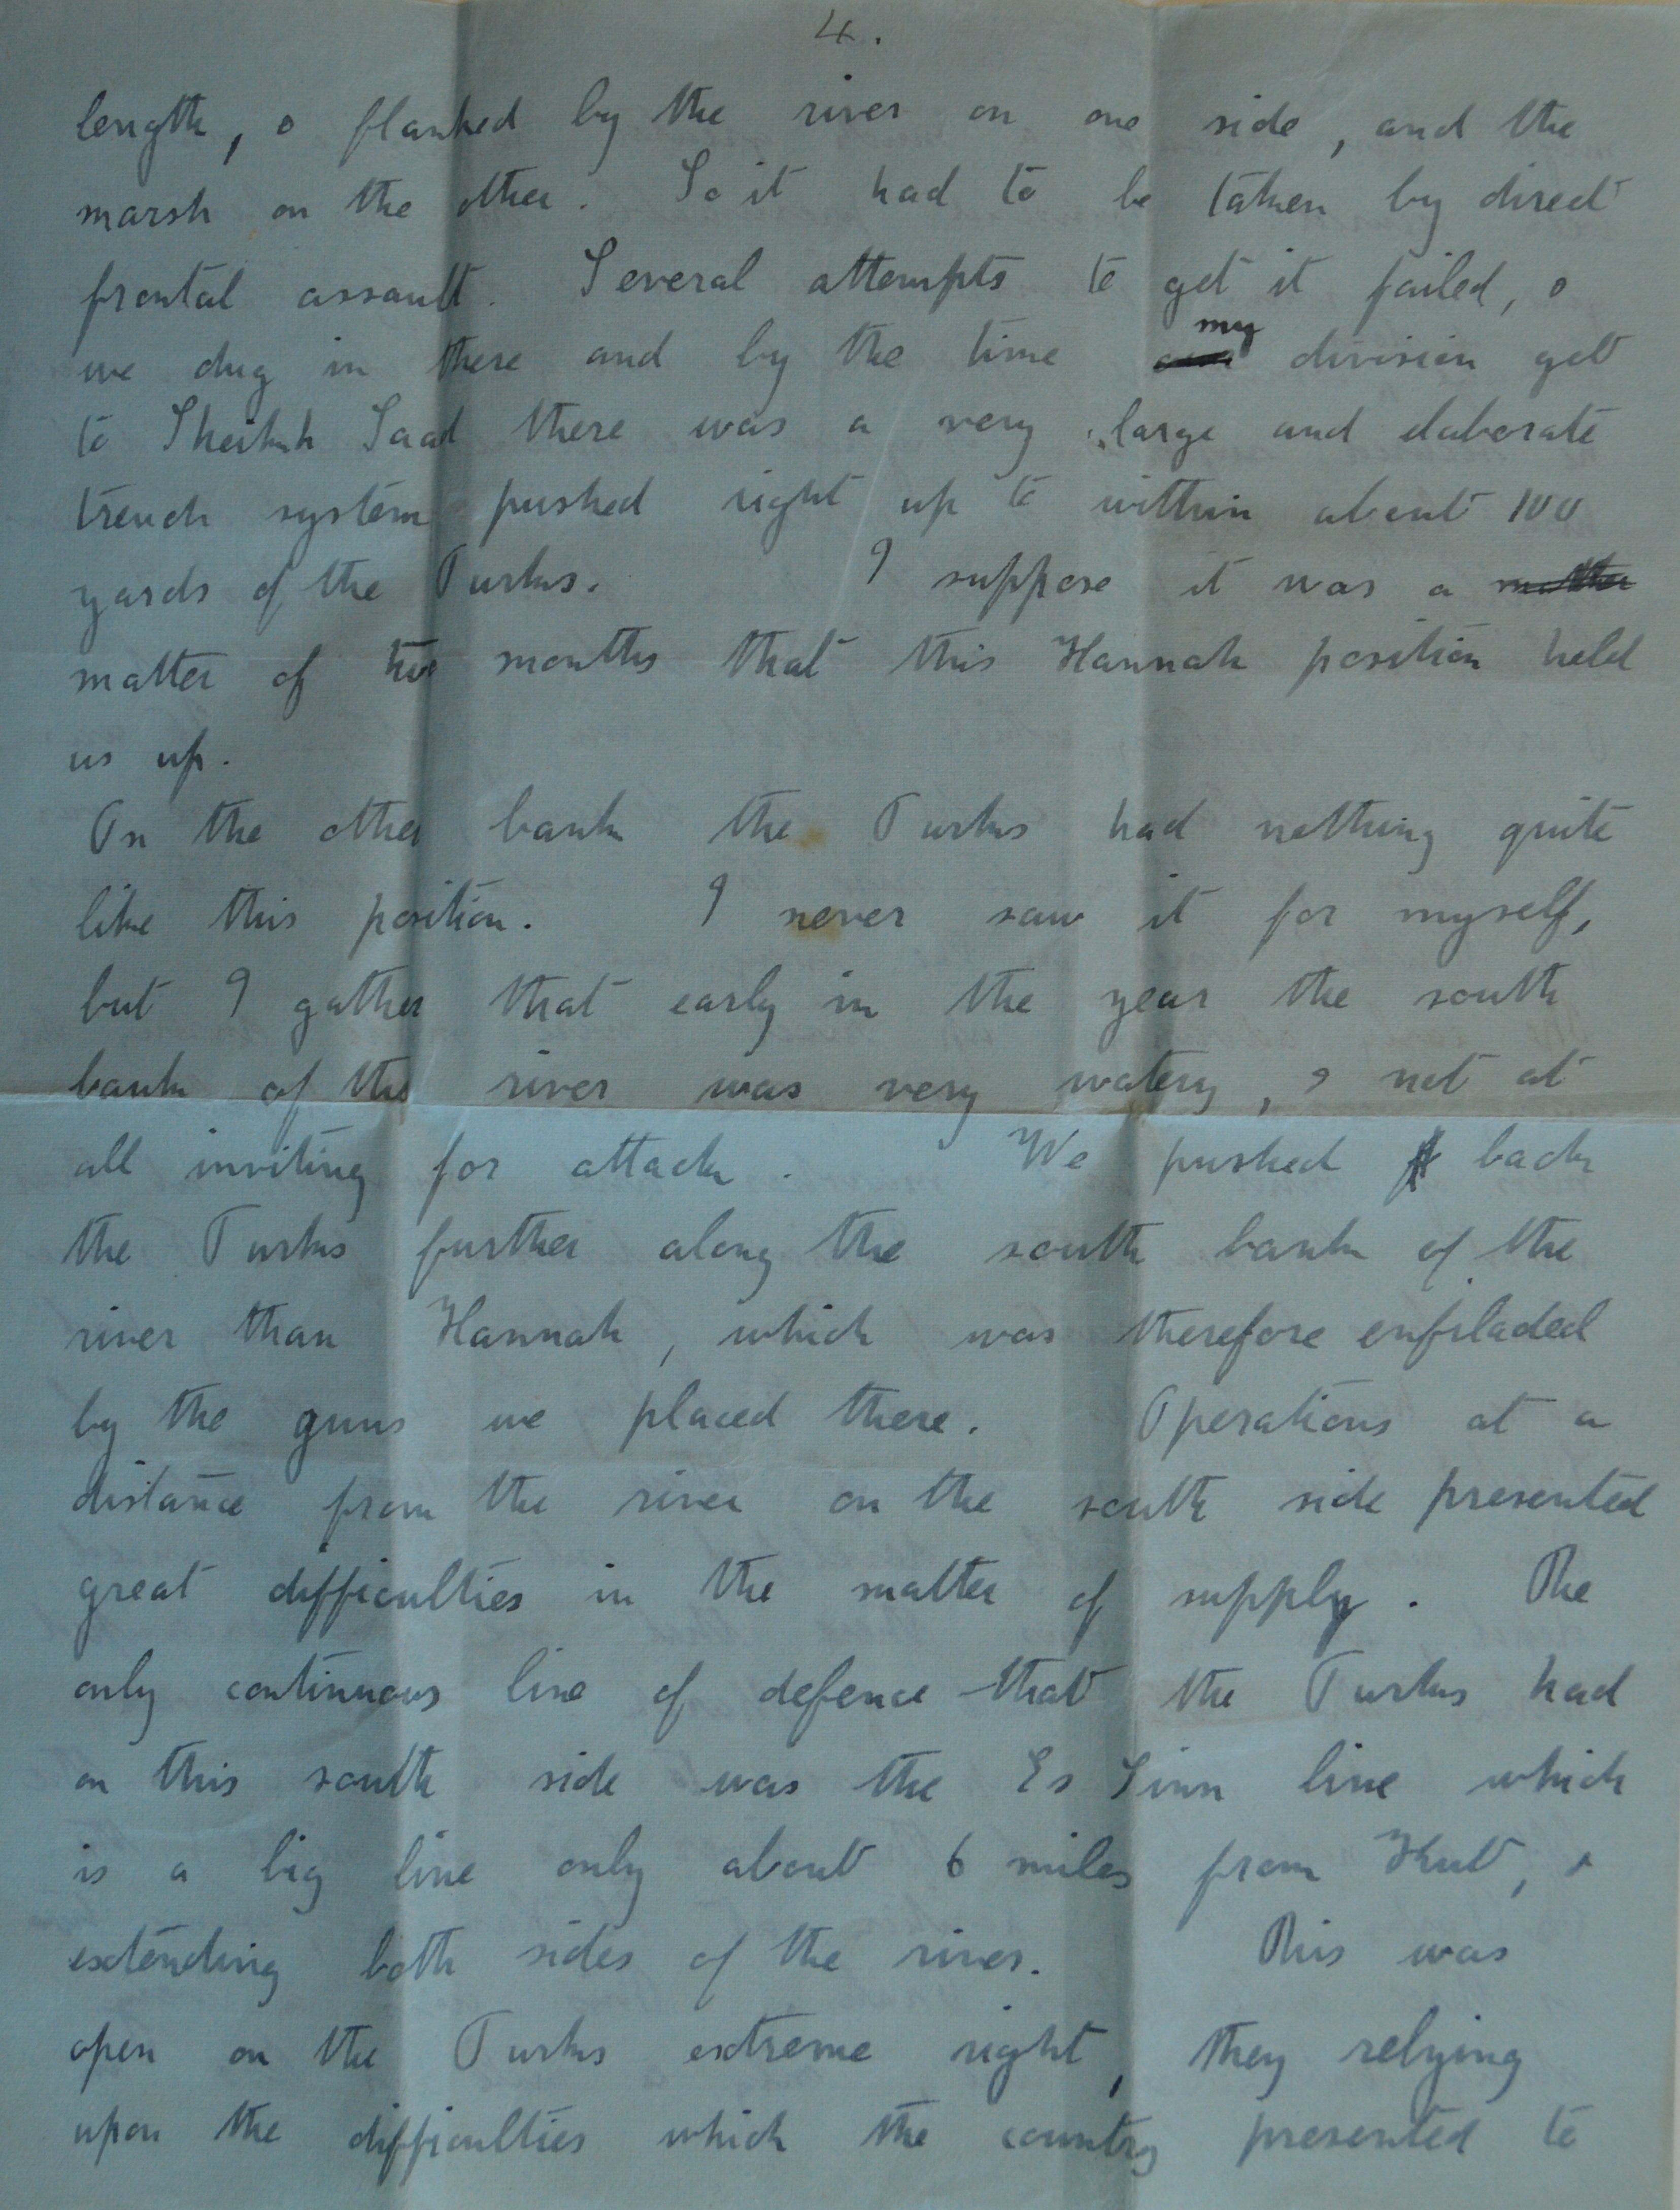 4.
length, & flanked by the river on one side, and the
marsh on the other. So it had to be taken by direct
frontal assault. Several attempts to get it failed, &
we dug in there and by the time my division got
to Sheikh Saad there was a very large and elaborate
trench system pushed right up to within about 100
yards of the Turks. I suppose it was a matter
matter of two months that this Hannah position held
us up.
On the other bank the Turks had nothing quite
like this position. I never saw it for myself,
but I gather that early in the year the south
bank of the river was very watery, & not at
all inviting for attack. We pushed back
the Turks further along the south bank of the
river than Hannah, which was therefore enfiladed
by the guns we placed there. Operations at a
distance from the river on the south side presented
great difficulties in the matter of supply. The
only continuous line of defence that the Turks had
on this south side was the Es Sinn line which
is a big line only about 6 miles from Kut, &
extending both sides of the river. This was
open on the Turks extreme right, they relying
upon the difficulties which the country presented to